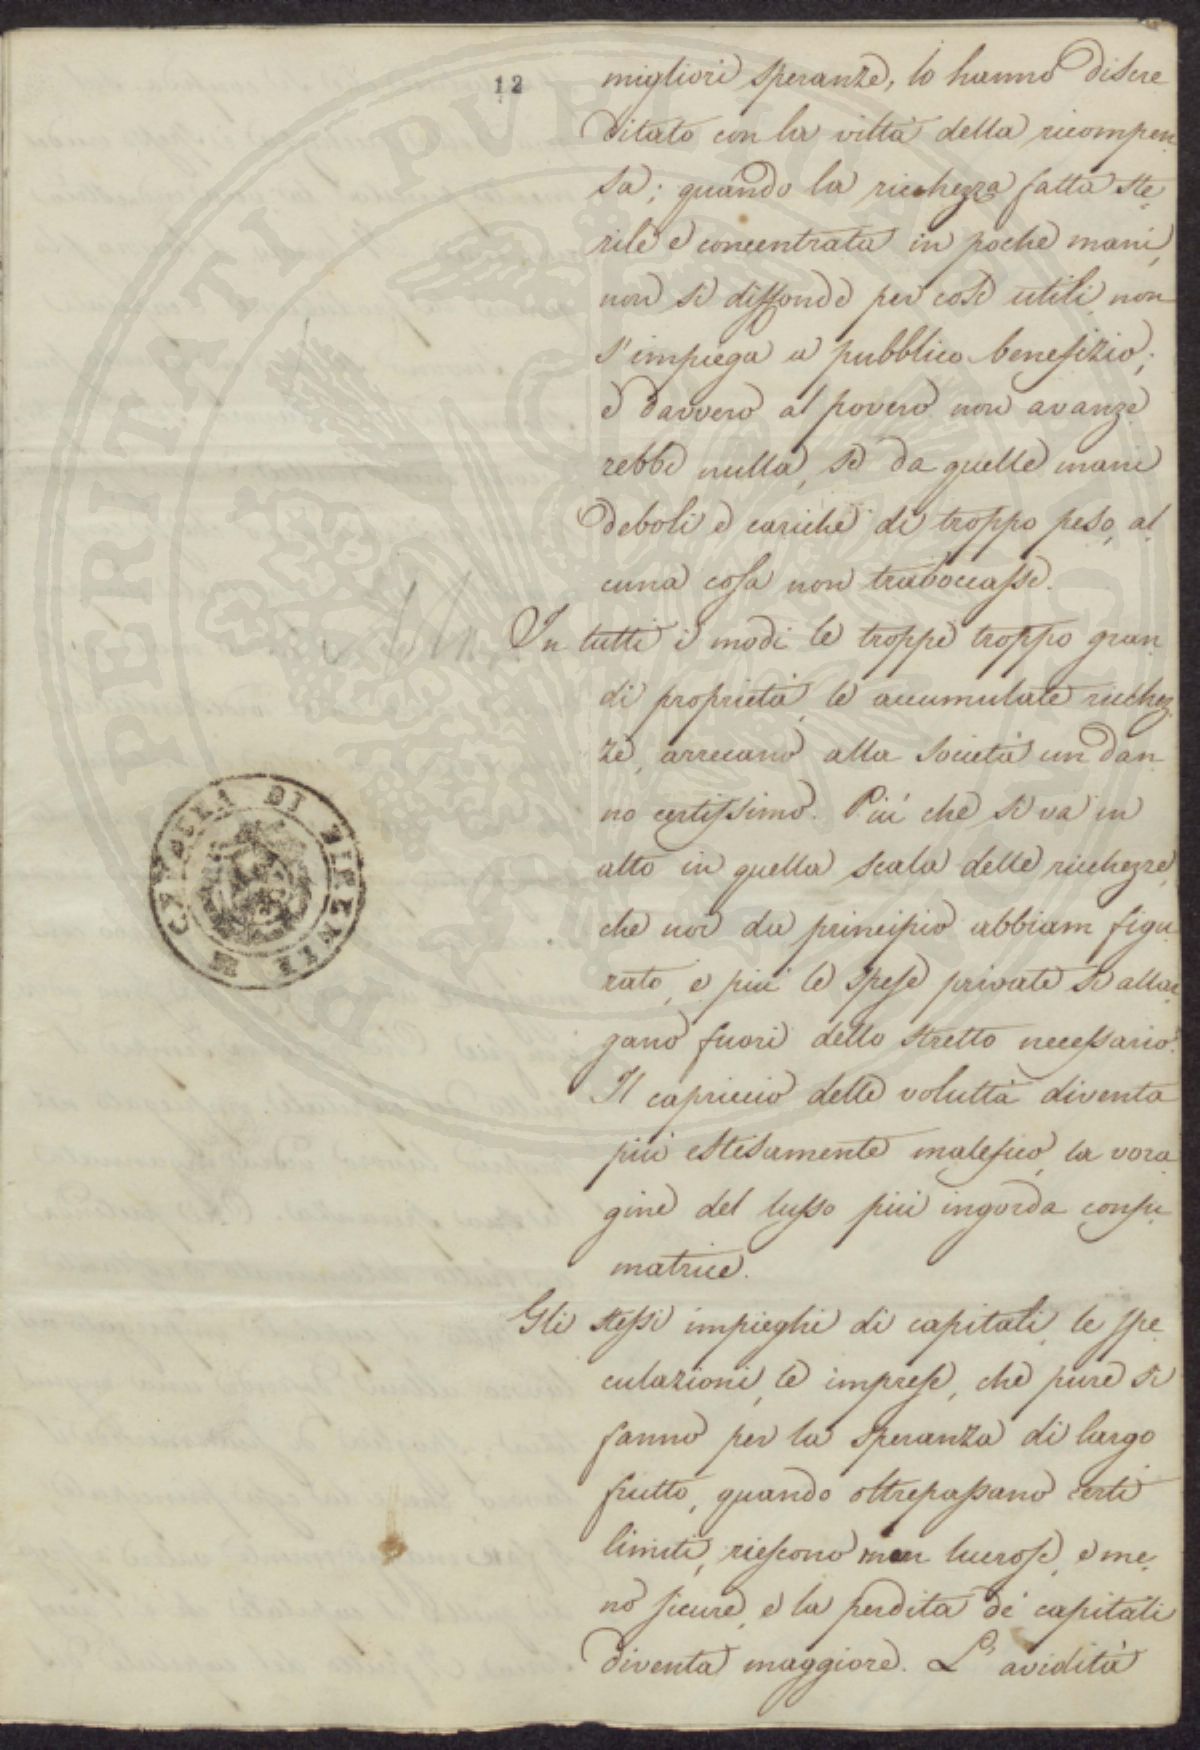 12
migliori speranze, lo hanno discre
ditato con la viltà della ricompen
sa; quando la ricchezza fatta ste,
rile e concentrata in poche mani,
non si diffonde per cose utili, non
s'impiega a pubblico benefizio;
e davvero al povero non avanze
rebbe nulla, se da quelle mani
deboli e cariche di troppo peso, al,
cuna cosa non traboccasse.
In tutti i modi le troppe troppo gran,
di proprietà, le accumulate ricchez,
ze, arrecano alla società un dan,
no certissimo. Più che si va in
alto in quella scala delle ricchezze,
che noi da principio abbiam figu,
rato, e più le spese private si allar,
gano fuori dello stretto necessario.
Il capriccio delle voluttà diventa
più estesamente malefico, la vora
gine del lusso più ingorda consu,
matrice.
Gli stessi impieghi di capitali, le spe,
culazioni, le imprese, che pure si
fanno per la speranza di largo
frutto, quando oltrepassano certi
limiti, riescono men lucrose, e me,
no sicure, e la perdita de' capitali
diventa maggiore. L'avidità
CAMERA DI FIRENZE
PERITATI PVBLICAE